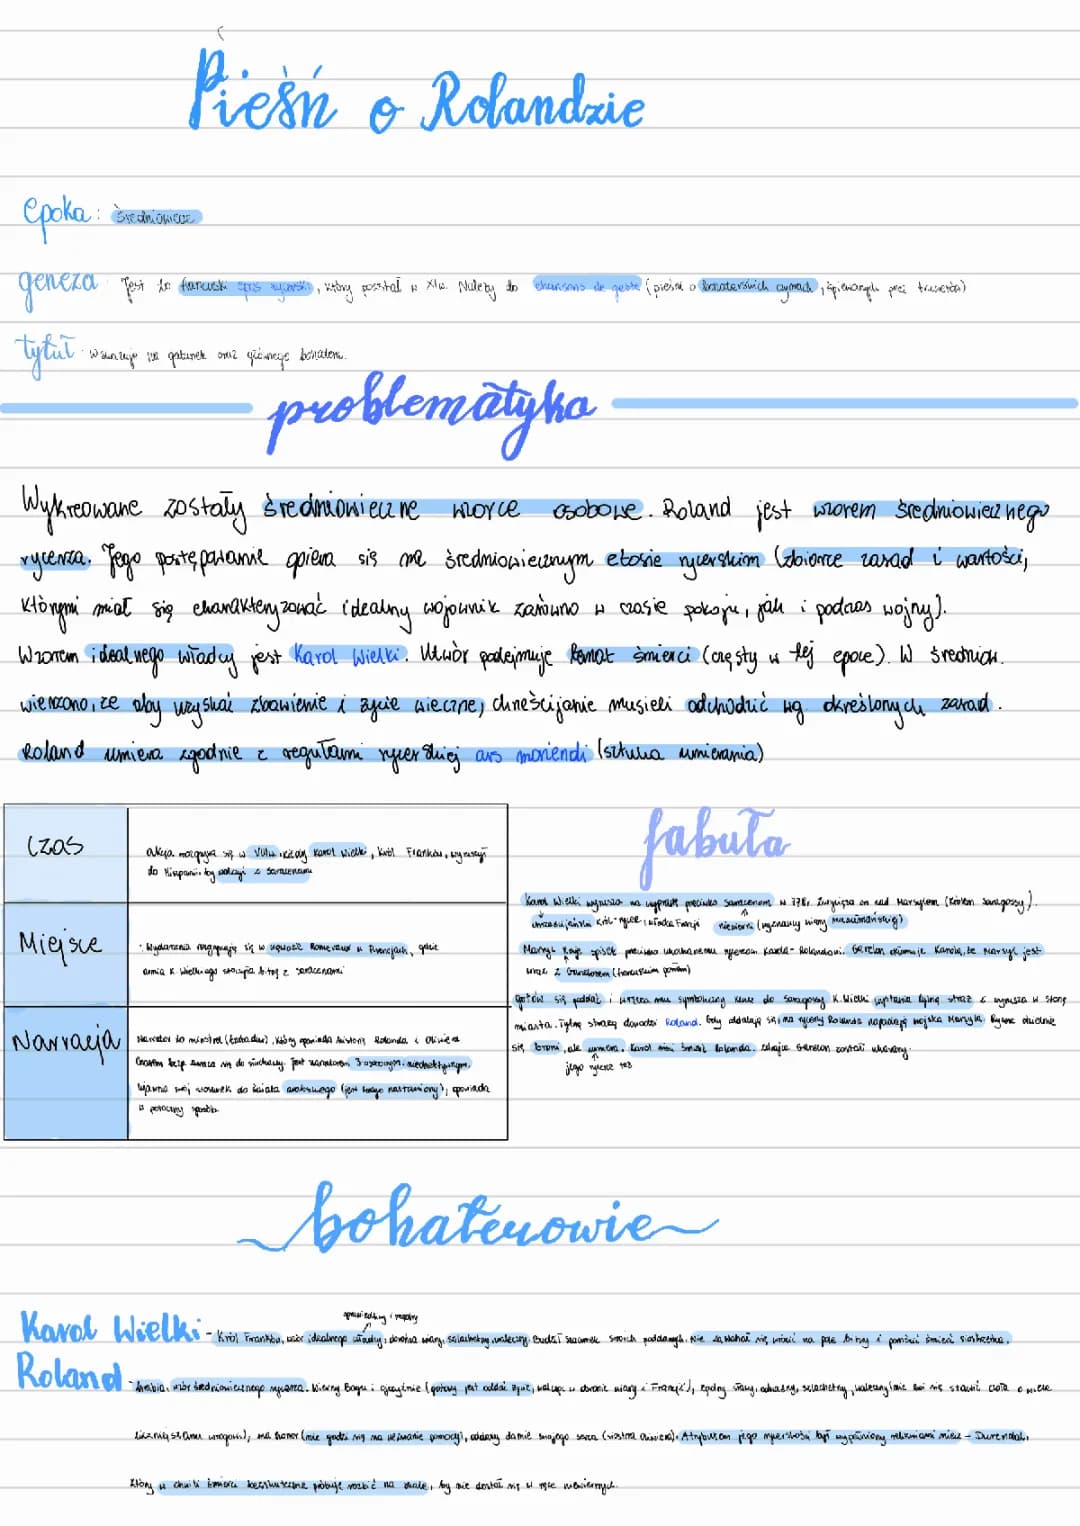 Pieśń o Rolandzie
epoka: Średniowiecze
geneza Jest to francuski epos rycerski, który powstał w XIw. Należy do chansons de geste (pieśni o bohaterskich czynach, śpiewanych przez truwerów)
tytuł - wskazuje na gatunek oraz głównego bohatera.
problematyka
Wykreowane zostały średniowieczne wzorce osobowe. Roland jest wzorem średniowiecznego
rycerza. Jego postępowanie opiera się na średniowiecznym etosie rycerskim (zbiorze zasad i wartości,
którymi miał się charakteryzować idealny wojownik zarówno w czasie pokoju, jak i podczas wojny).
Wzorem idealnego władcy jest Karol Wielki. Utwór podejmuje temat śmierci (częsty w tej epoce). W średniow.
wierzono, że aby uzyskać zbawienie i życie wieczne, chrześcijanie musieli odchodzić wg. określonych zasad.
Roland umiera zgodnie z regułami rycerskiej ars moriendi (sztuka umierania)
Czas
akcja rozgrywa się w VIIIw. kiedy Karol Wielki, król Franków, wyruszył
do Hiszpanii by walczyć z Saracenami
Miejsce
Wydarzenia rozgrywają się w wąwozie Roncevaux w Pirenejach, gdzie
armia K. Wielkiego stoczyła bitwę z saracenami
Narracja
Narrator to minstrel (trubadur), który opowiada historię Rolanda i Oliwiera
Czasem bezp. zwraca się do słuchaczy. Jest narratorem 3-osobowym, nieobiektywnym,
Wyraża swój stosunek do świata
opowiada
w potoczny sposób.
fabuła
Karol Wielki wyrusza na wyprawę przeciwko Saracenom w 778r. Zwycięża on nad Marsylem (królem Saragossy).
chrześcijański król-rycerz, władca Francji
niewierni (wyznawcy wiary muzułmańskiej)
Marsyl knuje spisek przeciwko ukochanemu rycerzowi Karola - Rolandowi. Ganelon okłamuje Karola, że Marsyl jest
wraz z Ganelonem (francuskim parem)
gotów się poddać i wręcza mu symboliczny klucz do Saragossy. K. Wielki zostawia tylną straż i wyrusza w stronę
miasta. Tylną strażą dowodzi Roland. Gdy oddalają się, na rycerzy Rolanda napadają wojska Marsyla. Rycerz dzielnie
się broni, ale umiera. Karol mści śmierć Rolanda. Zdrajca Ganelon zostaje ukarany.
jego rycerze też
bohaterowie
sprawiedliwy i rozsądny
Karol Wielki - Król Franków, wzór idealnego władcy, obrońca wiary, szlachetny, waleczny. Budzi szacunek swoich poddanych. Nie zawahał się, wrócić na pole bitwy i pomścić śmierć siostrzeńca.
Roland - hrabia, wzór średniowiecznego rycerza. Wierny Bogu i ojczyźnie (gotowy jest oddać życie, walcząc w obronie wiary i Francji), żądny sławy, odważny, szlachetny, waleczny (nie boi się stawić czoła o wiele
liczniejszemu wrogowi), ma honor (nie godzi się na wezwanie pomocy), oddany damie swojego serca (siostra Oliwiera). Atrybutem jego rycerskości był wypełniony relikwiami miecz - Durendal,
który w chwili śmierci bezskutecznie próbuje rozbić na skale, by nie dostał się w ręce niewiernych.